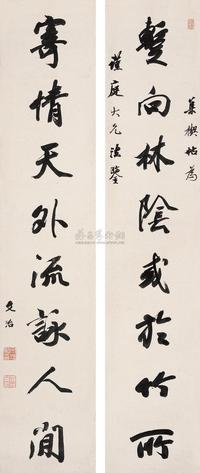 集禊帖為
暫向林陰或於竹所
謹庭大兄法鑒
寄情天外流詠人間
文治